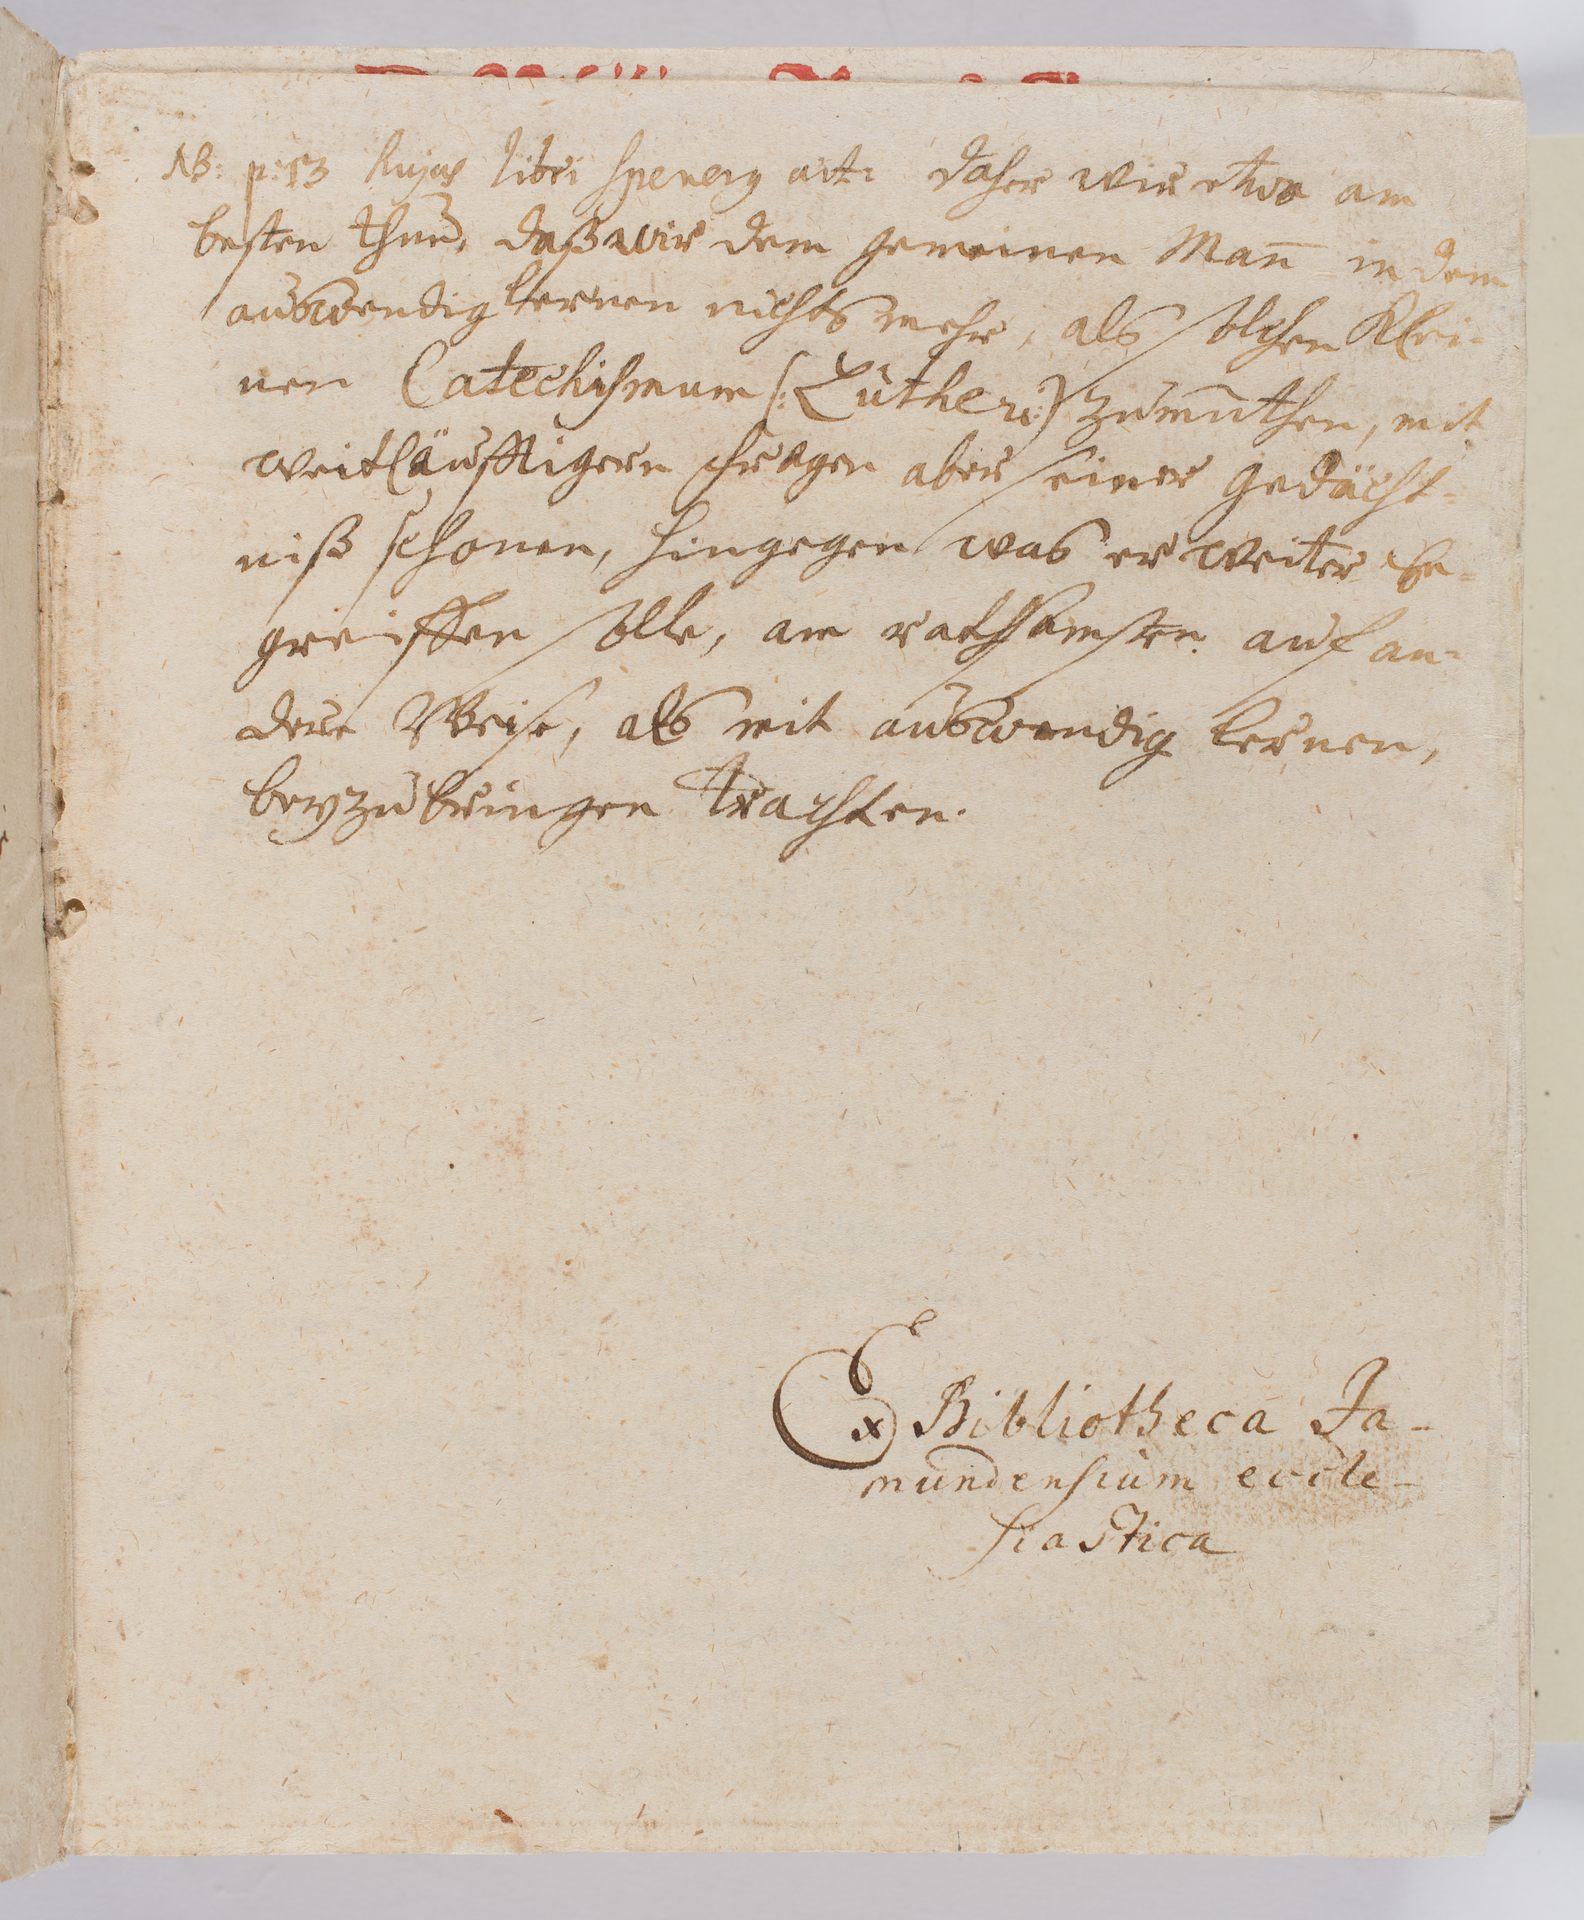 NB: p: 13 hujus libri Spenerg ait: Daher wir etwa am
besten thun, daß wir dem gemeinen Man̄ in dem
außwendig lernen nichts mehr, als solchen Klei-
nen Catechismum (: Lutheri:) zumuthen, mit
weitläufftigern fragen aber seiner Gedächt-
niß schonen, hingegen was er weiter be-
greiffen solle, am rathsamsten auf an-
dere Weise, als mit außwendig lernen,
beyzubringen trachten.
Ex Bibliotheca Ja-
mundensium eccle-
siastica